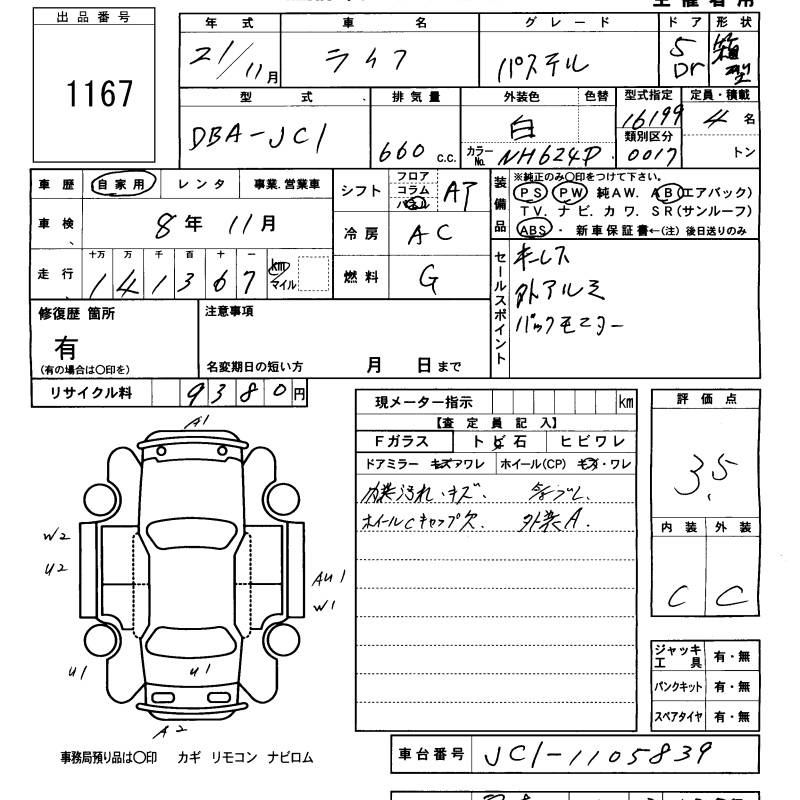 出品番号
1167
年式 車名 グレード ドア 形状
21/11月 ライフ パステル 5Dr 箱型
型式 排気量 外装色 色替 型式指定 定員・積載
DBA-JC1 660 c.c. 白 16199 4名
カラーNo. NH624P 類別区分 0017 トン
車歴 自家用 レンタ 事業.営業車
車検 8年 11月
走行 十万 万 千 百 十 一
141367 km マイル
シフト フロア コラム パネル AT
冷房 AC
燃料 G
装備品 ※純正のみ〇印をつけて下さい。
PS PW 純AW. AB(エアバック)
TV. ナビ. カワ. SR(サンルーフ)
ABS・ 新車保証書←(注) 後日送りのみ
セールスポイント
キーレス
外アルミ
バックモニター
修復歴 箇所
有
(有の場合は〇印を)
注意事項
名変期日の短い方 月 日まで
リサイクル料 9380円
現メーター指示 km
【査定員記入】
Fガラス トビ石 ヒビワレ
ドアミラー キズワレ ホイール(CP) キズ・ワレ
内装汚れ・キズ.
ホイールCキャップ欠. 外装A.
評価点
3.5
内装 外装
C C
A1
W2
U2
AU1
W1
U1
U1
A2
ジャッキ工具 有・無
パンクキット 有・無
スペアタイヤ 有・無
事務局預り品は〇印 カギ リモコン ナビロム
車台番号 JC1-1105839